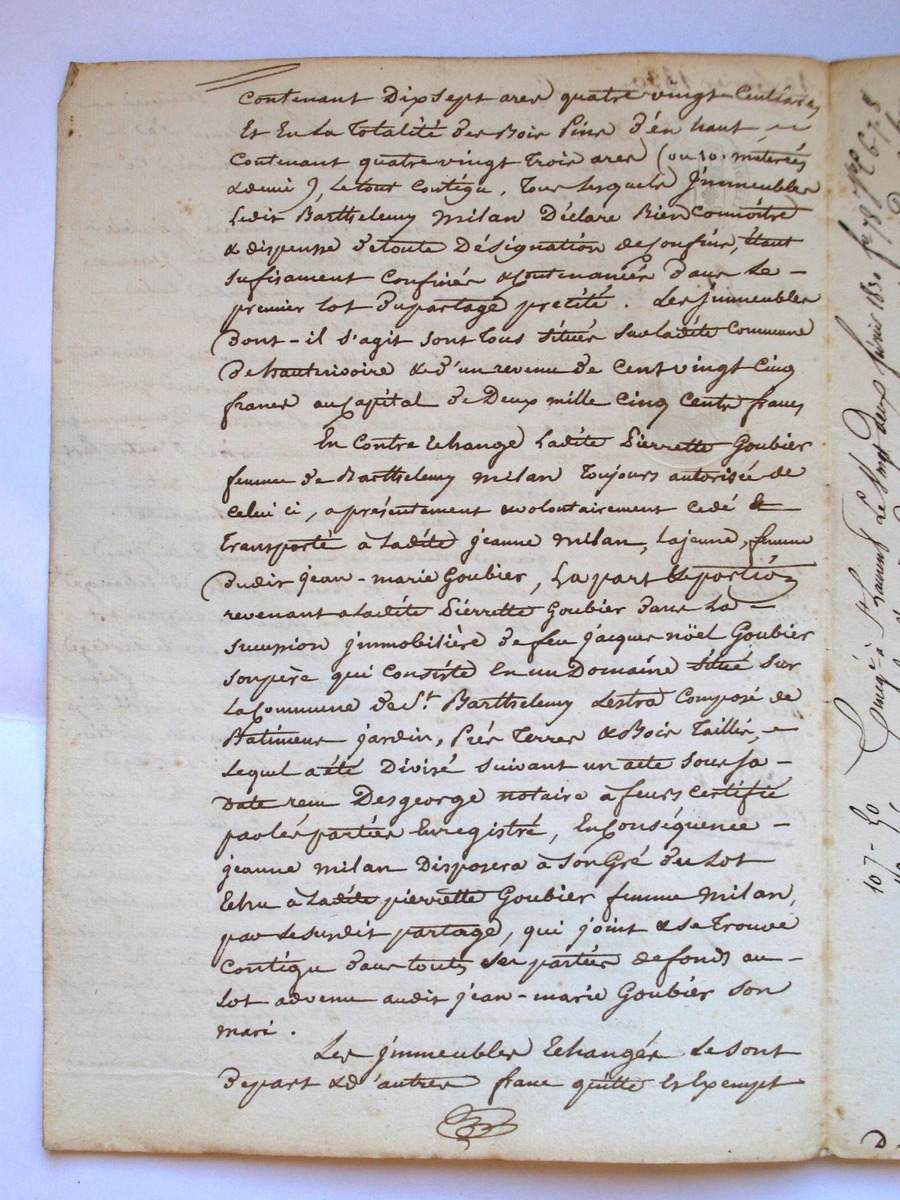 Contenant Dix Sept ares quatre vingt Centiares
Et En La Totalité des Bois Pins d'én haut
Contenant quatre vingt Trois ares (ou 10. meterées
& demie) Le tout Contigu, Tous Lesquels Jmmeubles
Ledit Barthelemy Milan Déclare Bien Connoitre
& dispense de toute Désignation de Confins, Etant
sufisament Confinés & Contenanciés dans Le
premier Lot du partage precité. Les Jmmeubles
Dont-il s'agit sont Tous situés sur Ladite Commune
de hauterivoire & d'un revenu de Cent vingt Cinq
francs au Capital de Deux mille Cinq Cents francs
En Contre Echange Ladite Pierrette Goubier
femme de Barthelemy Milan Toujours autorisée de
Celui ci, a présentement & volontairement Cedé &
Transporté à Ladite jeanne Milan, La jeune, femme
dudit jean-marie Goubier, La part & portion
revenant a Ladite Pierrette Goubier dans La
succession jmmobilière de feu jacques nöel Goubier
son père qui Consiste En un Domaine situé sur
La Commune de St. Barthelemy Lestra Composé de
Batimens jardin, Prés Terres & Bois Taillis,
Lequel a été Divisé suivant un acte sous sa
Date reçu Desgeorge notaire à feurs Certifié
par Les parties Enregistré, En Conséquence
jeanne Milan Disposera à Son Gré du Lot
Echu à Ladite pierrette Goubier femme Milan,
par Le susdit partage, qui joint & se Trouve
Contigu dans toutes ses parties de fonds au
Lot advenu audit jean-marie Goubier son
mari.
Les jmmeubles Echangés Le sont
de part & d'autres franc quitte Et Exempt
Enregé à St Laurent Le vingt deux février 1830 fo 78 Vo C 6 7 8
107-50